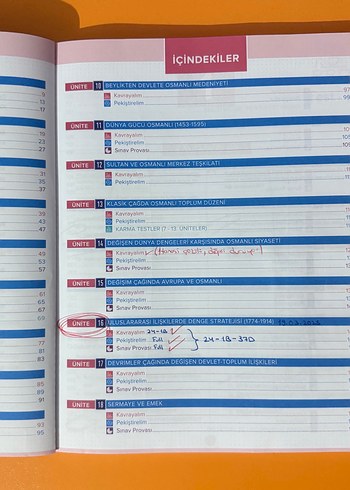 İÇİNDEKİLER
ÜNİTE 10 BEYLİKTEN DEVLETE OSMANLI MEDENİYETİ
Kavrayalım 97
Pekiştirelim 99
ÜNİTE 11 DÜNYA GÜCÜ OSMANLI (1453-1595)
Kavrayalım
Pekiştirelim
Sınav Provası
ÜNİTE 12 SULTAN VE OSMANLI MERKEZ TEŞKİLATI
Kavrayalım
Pekiştirelim
ÜNİTE 13 KLASİK ÇAĞDA OSMANLI TOPLUM DÜZENİ
Kavrayalım
Pekiştirelim
KARMA TESTLER (7 - 13. ÜNİTELER)
ÜNİTE 14 DEĞİŞEN DÜNYA DENGELERİ KARŞISINDA OSMANLI SİYASETİ
Kavrayalım
Pekiştirelim
Sınav Provası
ÜNİTE 15 DEĞİŞİM ÇAĞINDA AVRUPA VE OSMANLI
Kavrayalım
Pekiştirelim
Sınav Provası
ÜNİTE 16 ULUSLARARASI İLİŞKİLERDE DENGE STRATEJİSİ (1774-1914)
Kavrayalım 24-1B
Pekiştirelim
Sınav Provası
24-1B-37D
ÜNİTE 17 DEVRİMLER ÇAĞINDA DEĞİŞEN DEVLET-TOPLUM İLİŞKİLERİ
Kavrayalım
Pekiştirelim
Sınav Provası
ÜNİTE 18 SERMAYE VE EMEK
Kavrayalım
Pekiştirelim
Sınav Provası
9
13
17
19
23
27
31
35
37
39
43
47
49
53
57
61
65
67
69
77
81
83
85
89
91
93
95